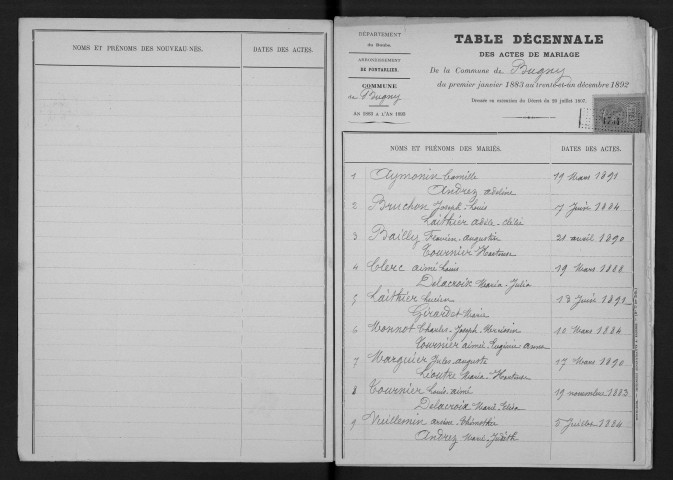 NOMS ET PRÉNOMS DES NOUVEAU NÉS. DATES DES ACTES.
DÉPARTEMENT
du Doubs.
ARRONDISSEMENT
DE PONTARLIER.
COMMUNE
de Bugny
AN 1883 A L'AN 1893
TABLE DÉCENNALE
DES ACTES DE MARIAGE
De la Commune de Bugny
du premier janvier 1883 au trente-et-un décembre 1892
Dressée en exécution du Décret du 20 juillet 1807.
NOMS ET PRÉNOMS DES MARIÉS. DATES DES ACTES.
1 Aymonin Camille 19 Mars 1891
Andrez Adeline
2 Bruchon Joseph-Louis 7 Juin 1884
Laithier Adèle-Clélie
3 Bailly Flavien-Augustin 21 avril 1890
Tournier
4 Clerc aimé Louis 19 Mars
Delacroix Maria-Julia
5 Laithier Lucien Juin 1891
Girardet Marie
6 Monnot Charles-Joseph 10 Mars 1884
Tournier aimée Eugénie Anna
7 Marguier Jules auguste 17 Mars 1890
Maria
8 Tournier Louis-aimé 19 novembre 1883
Delacroix Marie
9 Vuillemin 5 Juillet 1884
Andrez Marie-Judith